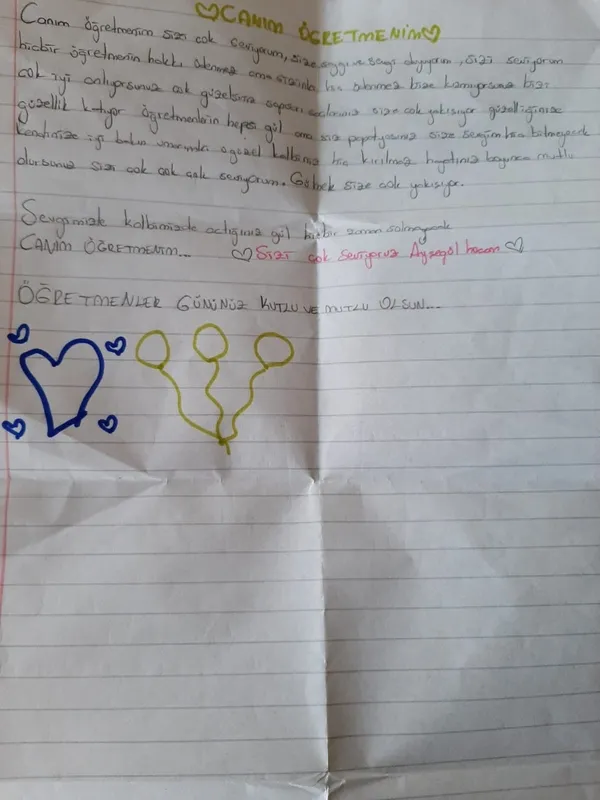 CANIM ÖĞRETMENİM
Canım öğretmenim sizi çok seviyorum, size saygı ve sevgi duyuyorum, sizi seviyorum
hiçbir öğretmenin hakkı ödenmez ama sizinki hiç ödenmez bize kızmıyorsunuz bizi
çok iyi anlıyorsunuz çok güzelsiniz size çok yakışıyor güzelliğinize
güzellik katıyor öğretmenlerin hepsi gül ama siz papatyasınız size sevgim hiç bitmeyecek
kendinize iyi bakın umarım o güzel kalbiniz hiç kırılmaz hayatınız boyunca mutlu
olursunuz sizi çok çok çok seviyorum. Gülmek size çok yakışıyor.
Sevgimizle kalbimizde açtığınız gül hiçbir zaman solmayacak
CANIM ÖĞRETMENİM... Sizi çok seviyoruz Ayşegül hocam
ÖĞRETMENLER GÜNÜNÜZ KUTLU VE MUTLU OLSUN...